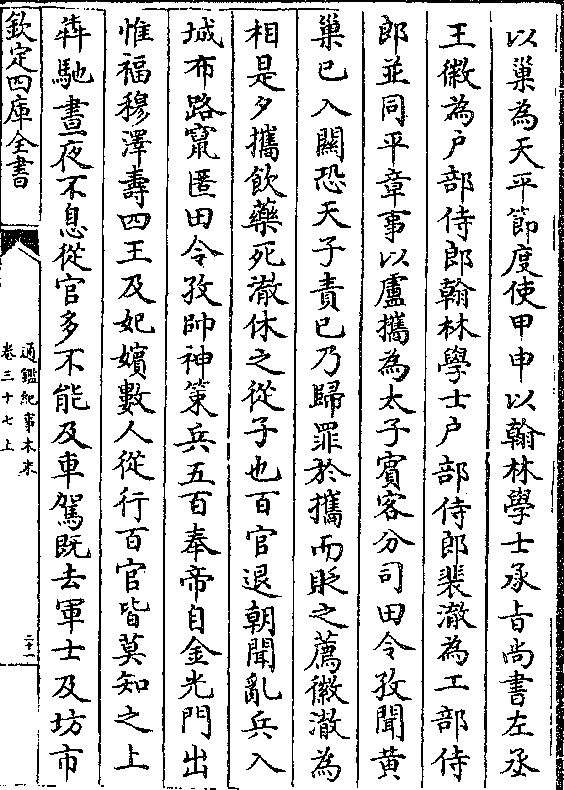 以巢為天平節度使甲申以翰林學士承㫖尚書左丞
王徽為戸部侍郎翰林學士戸部侍郎裴澈為工部侍
郎並同平章事以盧攜為太子賓客分司田令孜聞黄
巢已入關恐天子責已乃歸罪於攜而貶之薦徽澈為
相是夕攜飲藥死澈休之從子也百官退朝聞亂兵入
城布路竄匿田令孜帥神策兵五百奉帝自金光門出
惟福穆澤壽四王及妃嬪數人從行百官皆莫知之上
犇馳晝夜不息從官多不能及車駕既去軍士及坊市
欽定四庫全書
通鑑紀事本末
卷三十七上
二十一